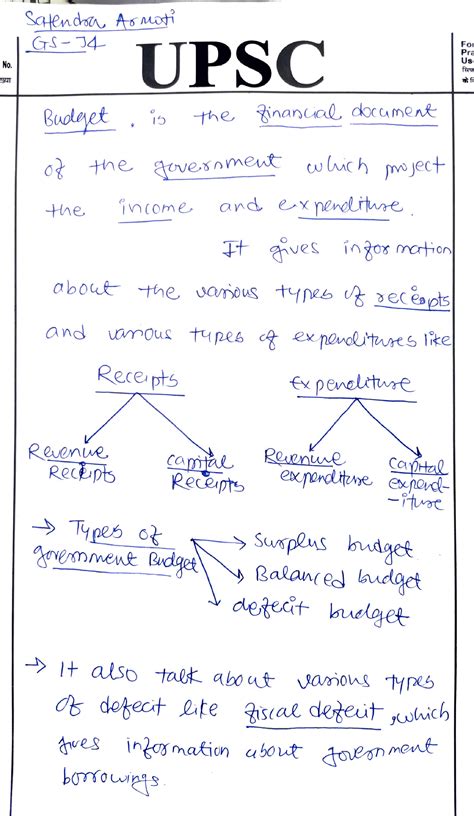 Satendra Armoti
GS-J4
UPSC
No.
Budget, is the financial document
of the government which project
the income and expenditure.
It gives information
about the various types of receipts
and various types of expenditures like
Receipts Expenditure
Revenue Receipts
capital Receipts
Revenue expenditure
capital expend-
-iture
→ Types of
government Budget
→ Surplus budget
→ Balanced budget
→ deficit budget
→ It also talk about various types
of deficit like fiscal deficit, which
gives information about government
borrowings.